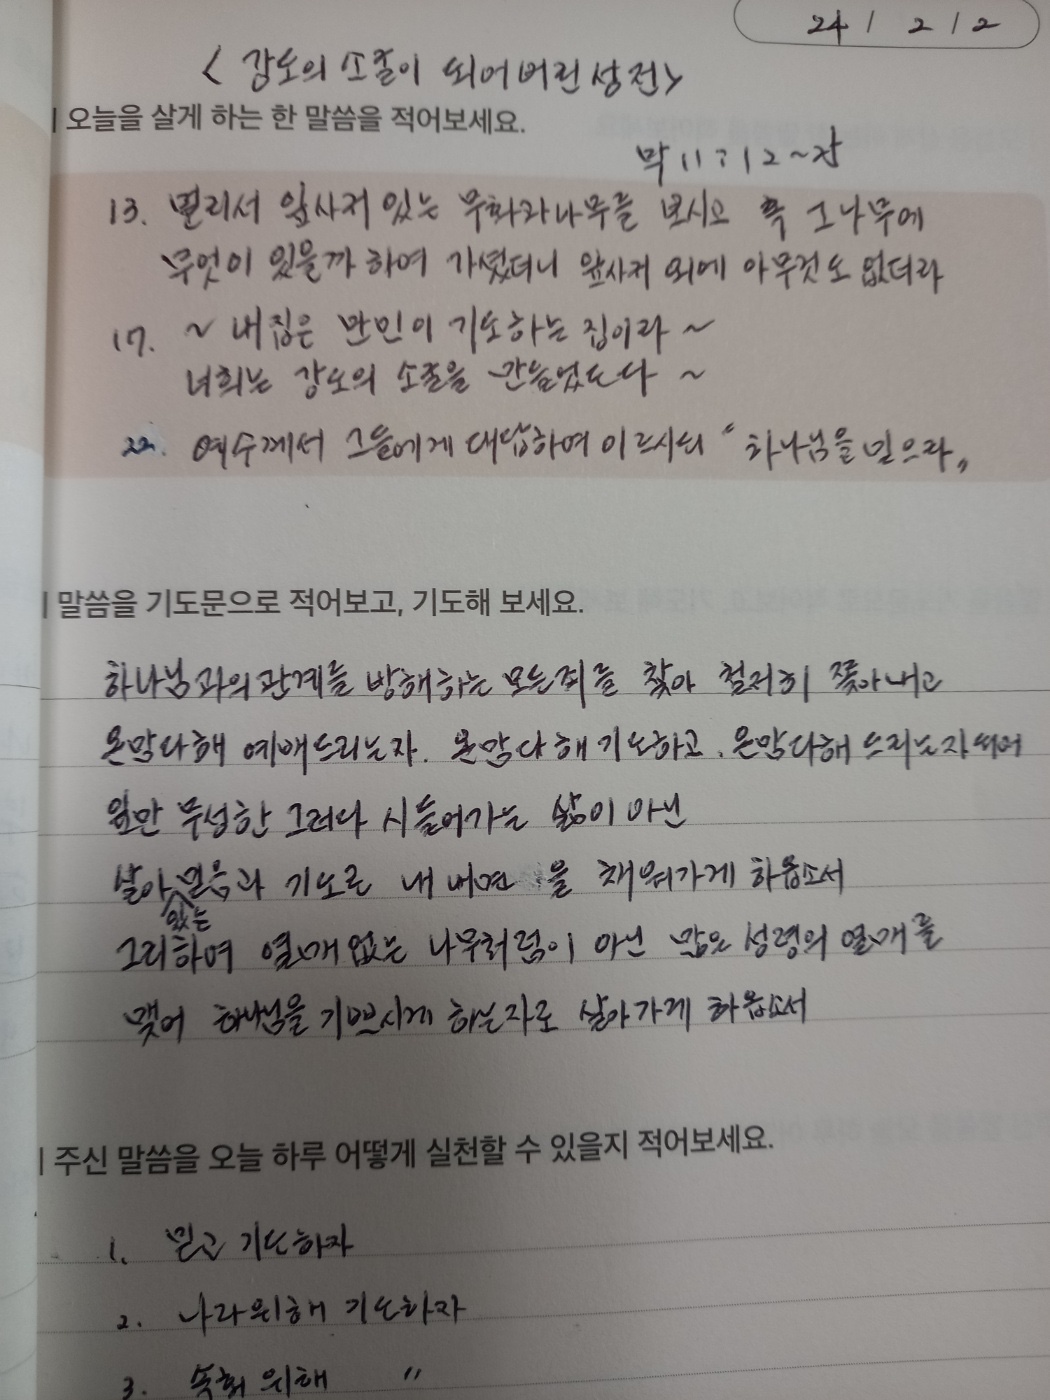 24 / 2 / 2
< 강도의 소굴이 되어버린 성전>
오늘을 살게 하는 한 말씀을 적어보세요.
막 11:12~
13. 멀리서 잎사귀 있는 무화과나무를 보시고 혹 그 나무에
무엇이 있을까 하여 가셨더니 잎사귀 외에 아무것도 없더라
17. ~ 내 집은 만민이 기도하는 집이라 ~
너희는 강도의 소굴을 만들었도다 ~
22. 예수께서 그들에게 대답하여 이르시되 "하나님을 믿으라"
말씀을 기도문으로 적어보고, 기도해 보세요.
하나님과의 관계를 방해하는 모든 죄를 찾아 철저히 쫓아내고
온맘다해 예배드리는자. 온맘다해 기도하고. 온맘다해 드리는자 되어
잎만 무성한 그러다 시들어가는 삶이 아닌
살아 있는 믿음과 기도로 내 내면을 채워가게 하옵소서
그리하여 열매 없는 나무처럼이 아닌 많은 성령의 열매를
맺어 하나님을 기쁘시게 하는자로 살아가게 하옵소서
주신 말씀을 오늘 하루 어떻게 실천할 수 있을지 적어보세요.
1. 믿고 기도하자
2. 나라위해 기도하자
3. 속회 위해 "